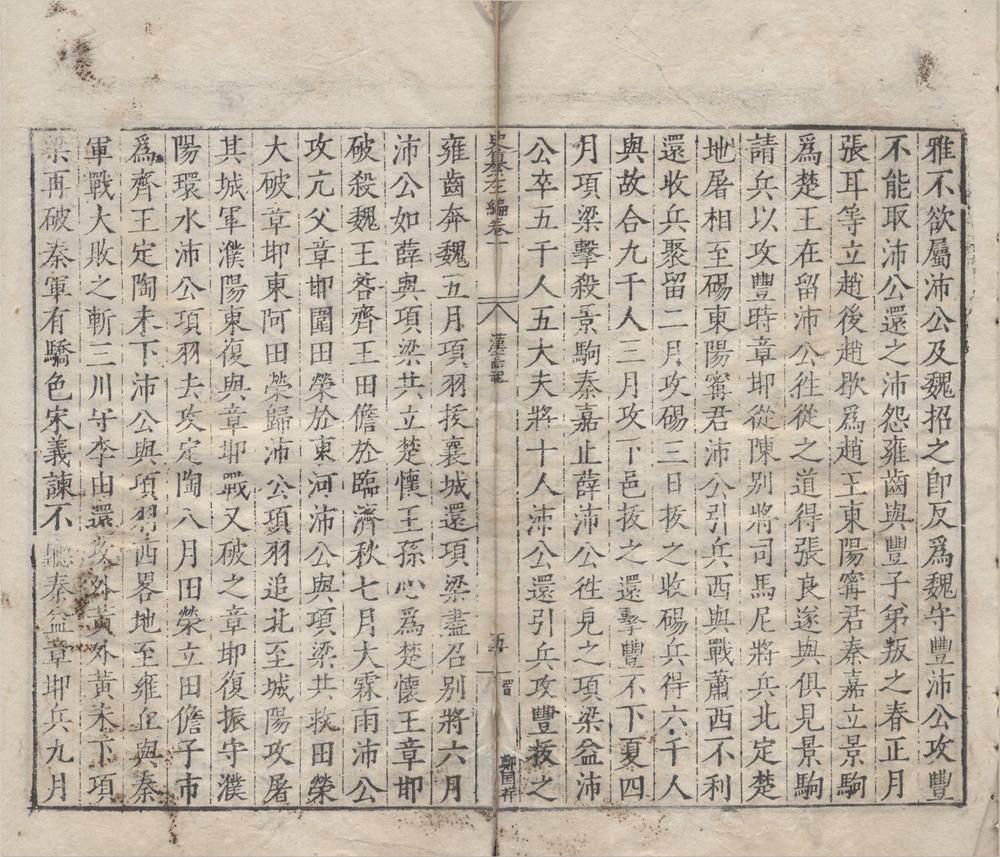 雅不欲屬沛公及魏招之即反爲魏守豐沛公攻豐
不能取沛公還之沛怨雍齒與豐子弟叛之春正月
張耳等立趙後趙歇爲趙王東陽寗君秦嘉立景駒
爲楚王在留沛公徃從之道得張良遂與俱見景駒
請兵以攻豐時章邯從陳别將司馬尼將兵北定楚
地屠相至碭東陽寗君沛公引兵西與戰蕭西不利
還收兵聚留二月攻碭三日拔之收碭兵得六千人
與故合九千人三月攻下邑拔之還擊豐不下夏四
月項梁擊殺景駒秦嘉止薛沛公徃見之項梁益沛
公卒五千人五大夫將十人沛公還引兵攻豐拔之
史纂左編卷一
漢高祖
五
鄭國祥
雍齒奔魏五月項羽拔襄城還項梁盡召别將六月
沛公如薛與項梁共立楚懷王孫心爲楚懷王章邯
破殺魏王咎齊王田儋於臨濟秋七月大霖雨沛公
攻亢父章邯圍田榮於東河沛公與項梁共救田榮
大破章邯東阿田榮歸沛公項羽追北至城陽攻屠
其城軍濮陽東復與章邯戰又破之章邯復振守濮
陽環水沛公項羽去攻定陶八月田榮立田儋子市
爲齊王定陶未下沛公與項羽西畧地至雍丘與秦
軍戰大敗之斬三川守李由還攻外黃外黃未下項
梁再破秦軍有驕色宋義諫不聽秦益章邯兵九月